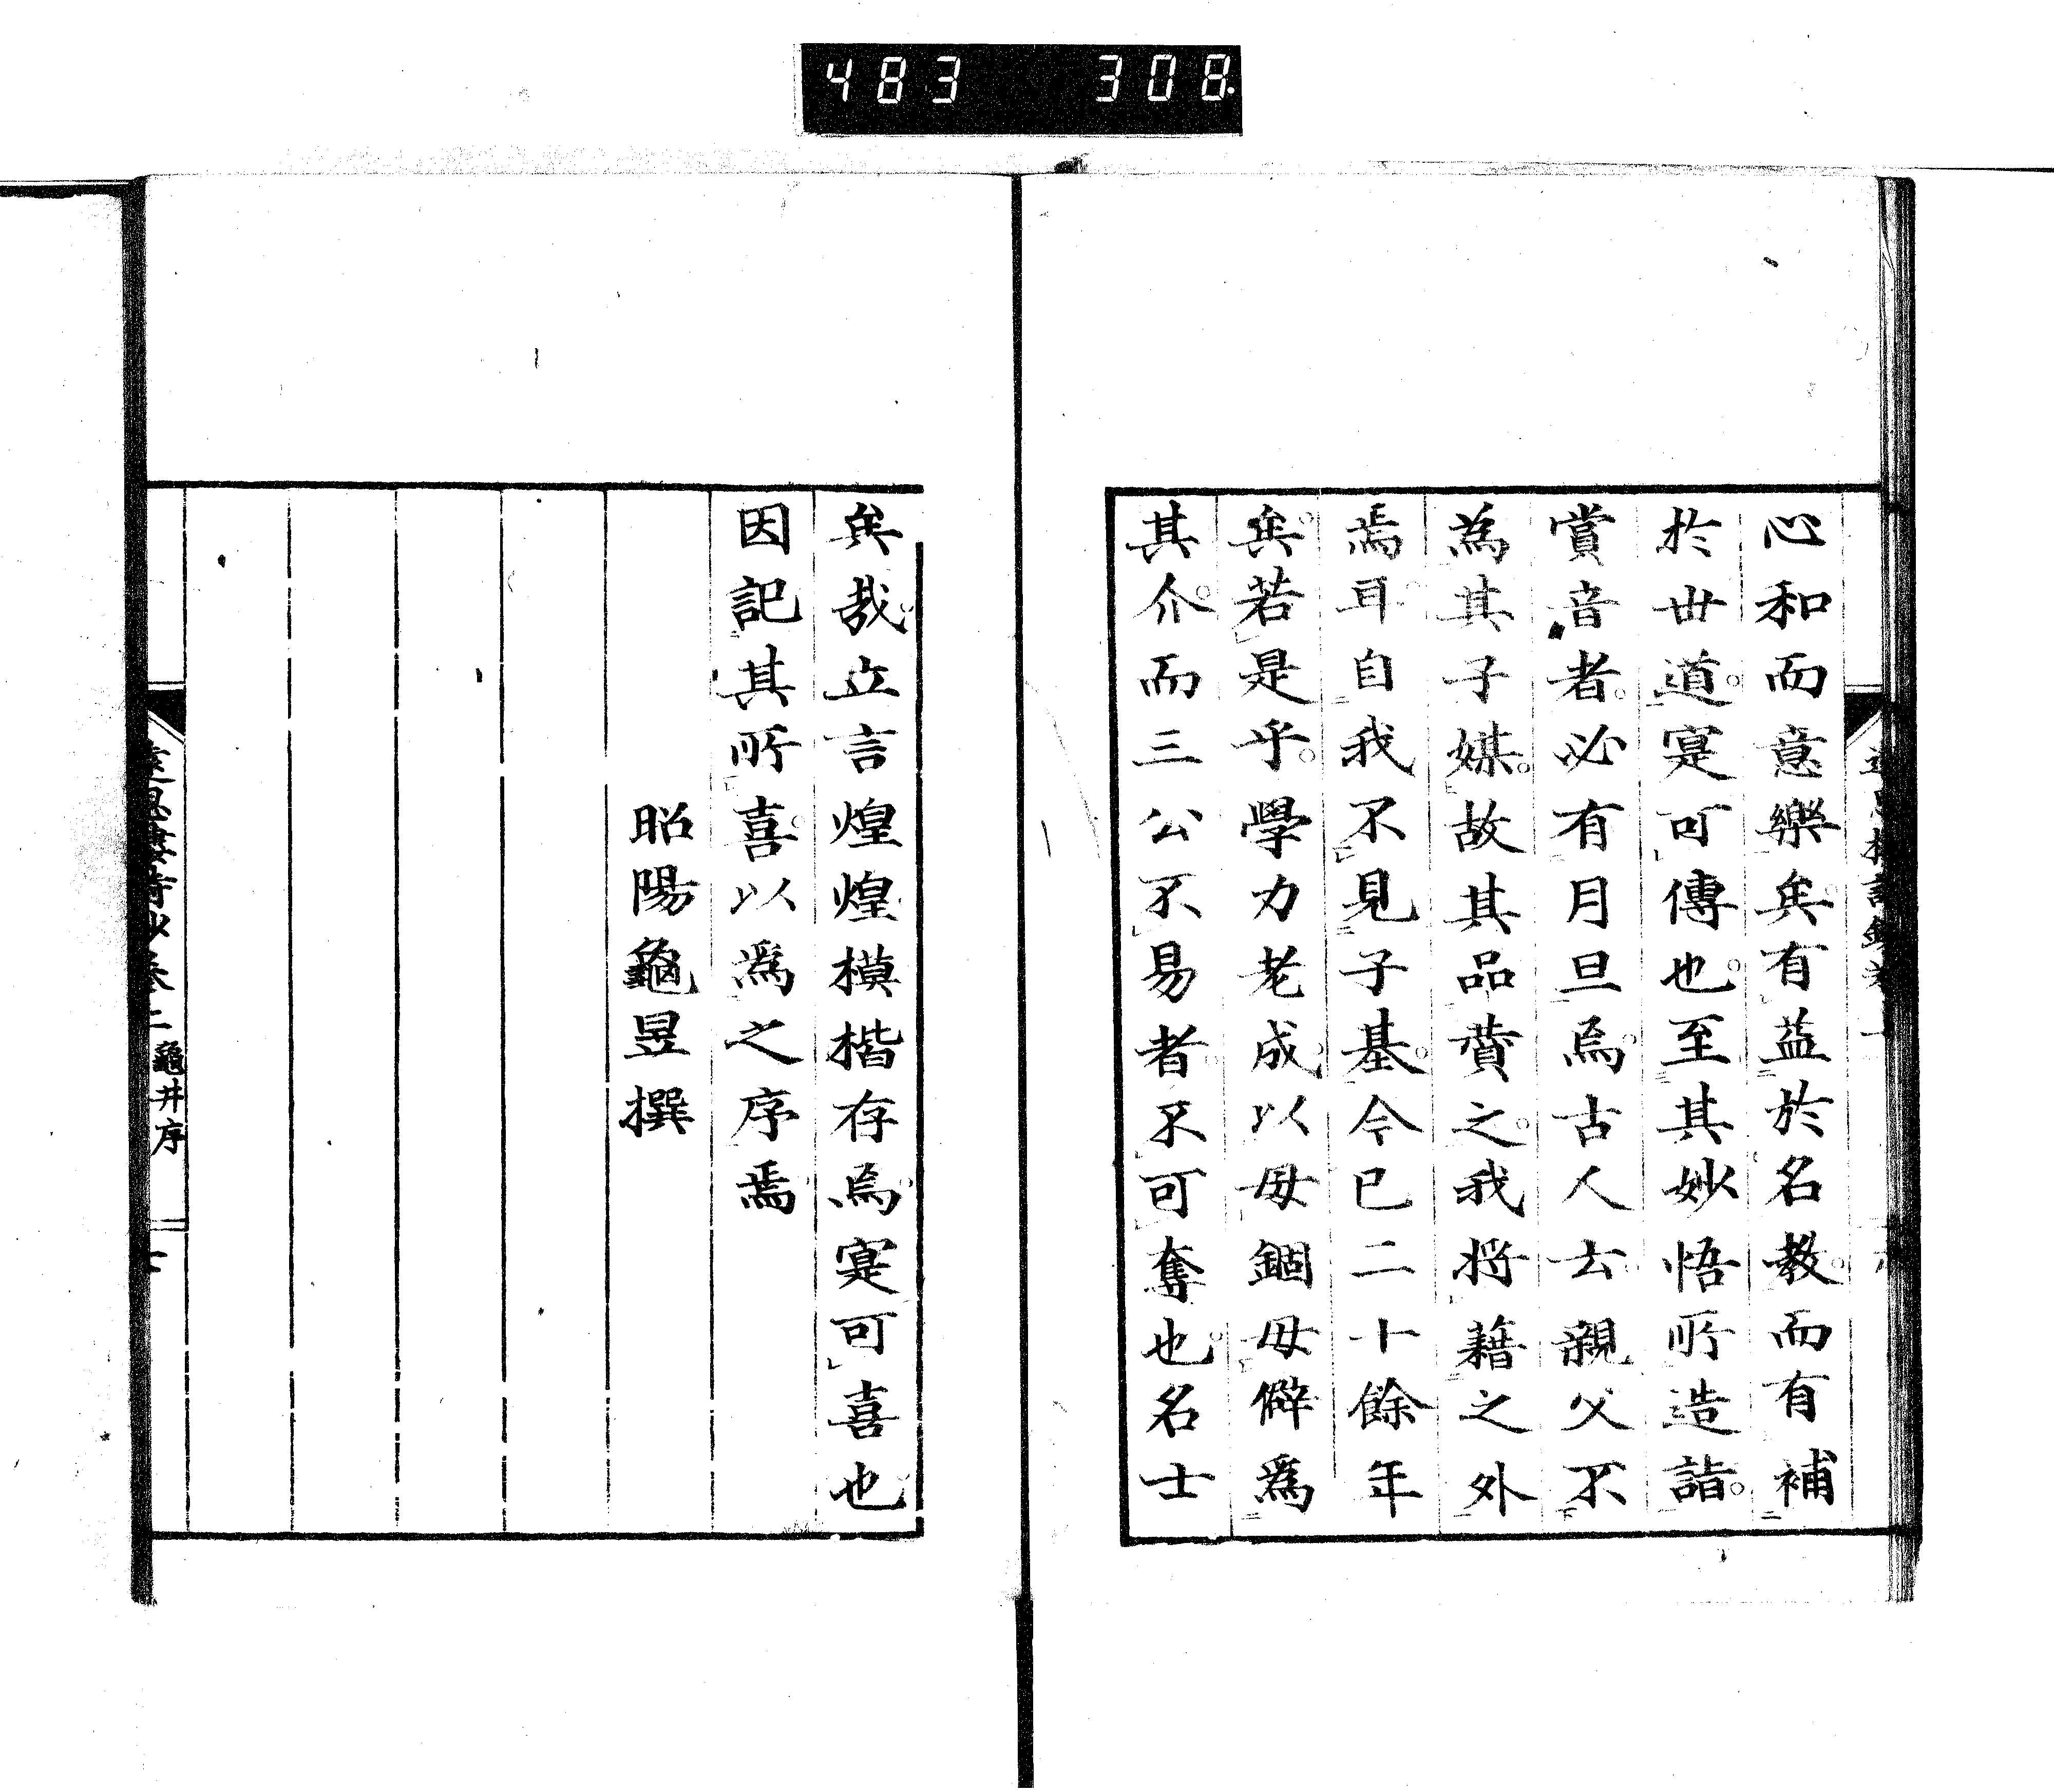 483 308
心和而意樂矣有益於名教而有補
於世道寔可傳也至其妙悟所造詣
賞音者必有月旦焉古人云親父不
為其子媒故其品賚之我将藉之外
焉耳自我不見子基今已二十餘年
矣若是乎學力老成以毋錮毋僻爲
其介而三公不易者不可奪也名士
矣哉立言煌煌模楷存焉寔可喜也
因記其所喜以爲之序焉
昭陽龜昱撰
遠思樓詩鈔卷二 龜井序
七